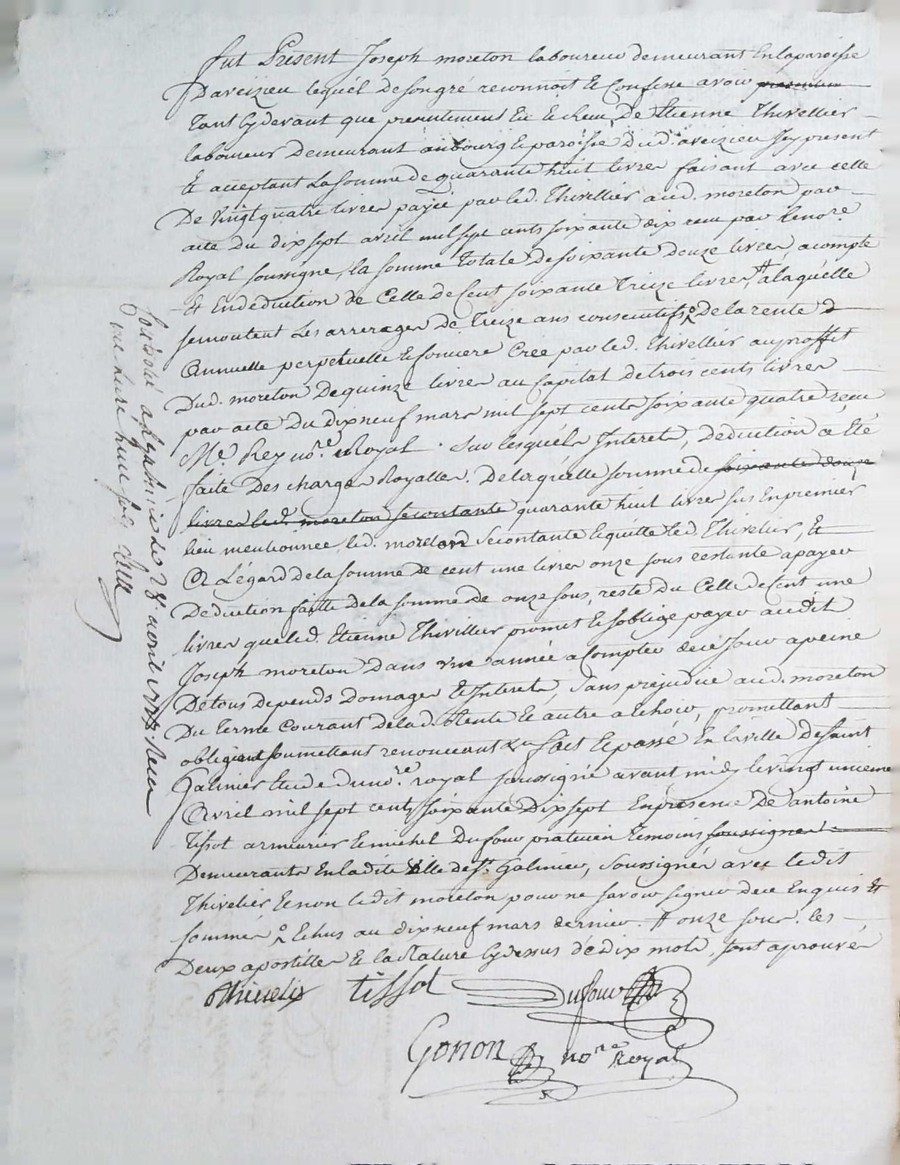 fut Present Joseph moreton laboureur demeurant En laparoisse
Daveizieu lequel de son gré reconnoit Et Confesse avoir
tant cydevant que presentement Eu et Receu de Etienne Thivellier
laboureur Demeurant au bourg Et paroisse Dud. aveizieu Jcy present
Et acceptant La somme de quarante huit livres faisant avec celle
De vingt quatre livres payée par led. Thivellier aud. moreton par
acte du dix sept avril mil sept cents soixante dix receu par
Royal soussigné, la somme totale de soixante douze livres, acompte
Et En deduction de Celle de Cent soixante treize livres # alaquelle
se montent Les arrerages de treize ans consecutifs de la rente
annuelle perpetuelle Et fonciere Creé par led. Thivellier au proffit
Dud. moreton de quinze livres au Capital de trois cents livres
par acte du dix neuf mars mil sept cents soixante quatre receu
Me. Rey nore. Royal. Sur lesquels Interets, deduction a Eté
faite Des charges Royalles. De laquelle somme de soixante douze
livres led. moreton se contante quarante huit livres sus En premier
lieu mentionnée, led. moreton se contante Et quitte led. Thivelier, Et
a L'égard de la somme de cent une livres onze sous restante apayer
Deduction faitte de la somme de onze sous, reste du Celle de Cent une
livres que led. Etienne Thivillier promet Et soblige payer audit
Joseph moreton dans une année a Compter de ce jour a peine
De tous depends domages Et Interets, sans prejudice aud. moreton
Du terme Courant de lad. Rente Et autre a Echoir, promettant
obligeant soumettant renonceant &a fait Et passé En la ville de Saint
Galmier Etude du nore. royal soussigné avant midy le vingt unieme
avril mil sept cents soixante dix sept En presence de antoine
Tissot armurier Et michel Dufour praticien temoins soussignés
Demeurants En ladite ville de St. Galmier, soussignés avec ledit
Thivelier Et non ledit moreton pour ne savoir signer de ce Enquis Et
sommés Echus au dix neuf mars dernier. # onze sous. les
Deux apostilles Et la Rature cy dessus de dix mots, sont aprouvés
Thivelier tissot Dufour
Gonon nore Royal
Controlé a St galmier le 28 avril 1777 Receu
une livre